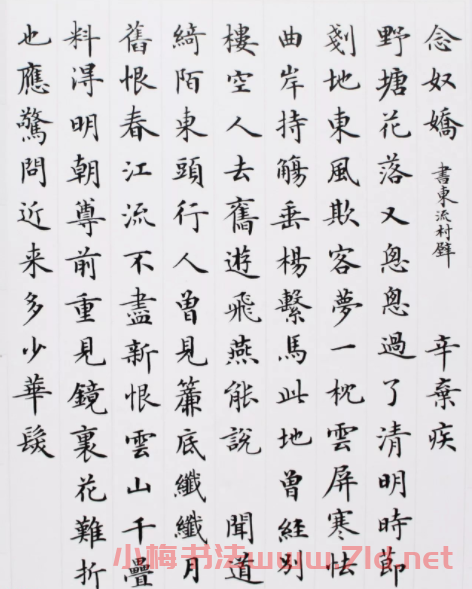 念奴嬌 書東流村壁 辛棄疾
野塘花落又怱怱過了清明時節
剗地東風欺客夢一枕雲屏寒怯
曲岸持觴垂楊繫馬此地曾經別
樓空人去舊遊飛燕能說 聞道
綺陌東頭行人曾見簾底纖纖月
舊恨春江流不盡新恨雲山千疊
料得明朝尊前重見鏡裏花難折
也應驚問近来多少華髮
小梅书法www.7ld.net